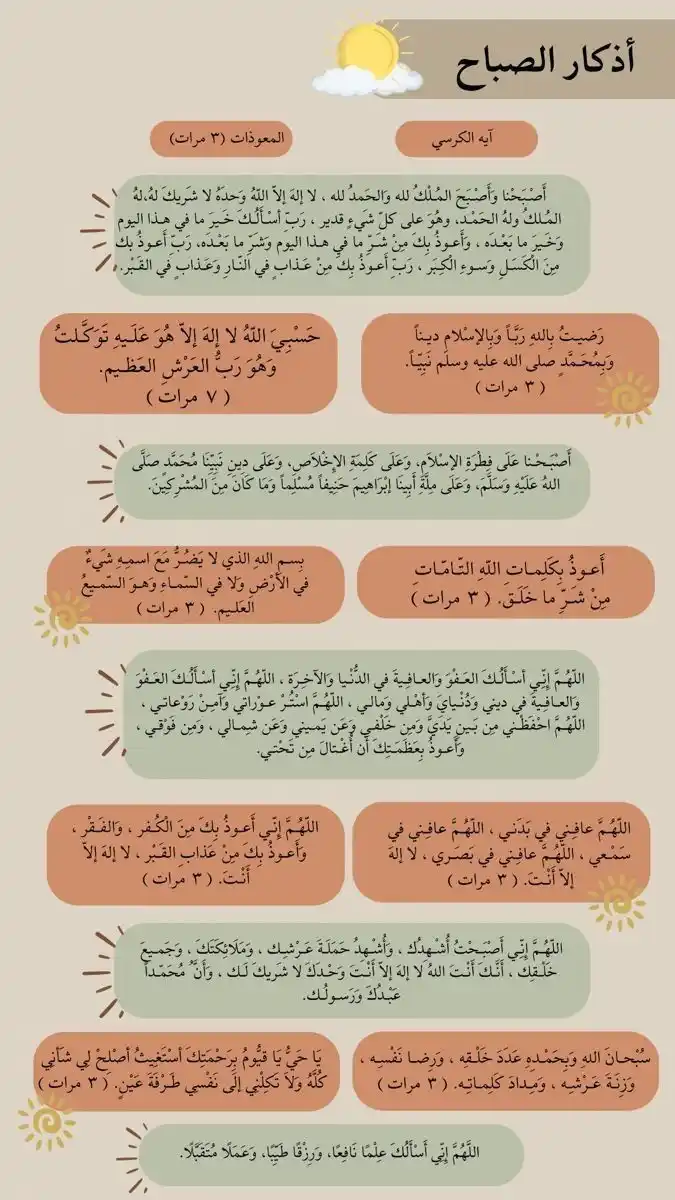 أذكار الصباح
آيه الكرسي
المعوذات (٣ مرات)
أَصْبَحْنا وَأَصْبَحَ المُلْكُ لله وَالحَمدُ لله ، لا إلهَ إلاّ اللّهُ وَحدَهُ لا شَريكَ لهُ،لهُ
المُلكُ ولهُ الحَمْد، وهُوَ على كلّ شَيءٍ قدير ، رَبِّ أسْألُكَ خَيرَ ما في هذا اليوم
وَخَيرَ ما بَعْدَه ، وَأَعوذُ بِكَ مِنْ شَرِّ ما في هذا اليوم وَشَرِّ ما بَعْدَه، رَبِّ أَعوذُ بك
مِنَ الْكَسَلِ وَسوءِ الْكِبَر ، رَبِّ أَعوذُ بِكَ مِنْ عَذابٍ في النّارِ وَعَذابٍ في القَبْر.
رَضيتُ بِاللهِ رَبَّاً وَبِالإسْلامِ ديناً
وَبِمُحَمَّدٍ صلى الله عليه وسلم نَبِيّاً.
( ٣ مرات )
حَسْبِيَ اللّهُ لا إلهَ إلاّ هُوَ عَلَيهِ تَوَكَّلتُ
وَهُوَ رَبُّ العَرْشِ العَظيم.
( ٧ مرات )
أَصْبَحْنا عَلَى فِطْرَةِ الإسْلاَمِ، وَعَلَى كَلِمَةِ الإِخْلاَصِ، وَعَلَى دِينِ نَبِيِّنَا مُحَمَّدٍ صَلَّى
اللهُ عَلَيْهِ وَسَلَّمَ، وَعَلَى مِلَّةِ أَبِينَا إبْرَاهِيمَ حَنِيفاً مُسْلِماً وَمَا كَانَ مِنَ المُشْرِكِينَ.
أَعوذُ بِكَلِماتِ اللّهِ التّامّاتِ
مِنْ شَرِّ ما خَلَق. ( ٣ مرات )
بِسمِ اللهِ الذي لا يَضُرُّ مَعَ اسمِهِ شَيءٌ
في الأرْضِ وَلا في السّماءِ وَهوَ السّميعُ
العَليم. ( ٣ مرات )
اللّهُمَّ إنِّي أسْألُكَ العَفْوَ وَالعافِيةَ في الدُّنْيا وَالآخِرَة ، اللّهُمَّ إنِّي أسْألُكَ العَفْوَ
وَالعافِيةَ في ديني وَدُنْيايَ وَأهْلي وَمالي ، اللّهُمَّ اسْتُرْ عوْراتي وَآمِنْ رَوْعاتي ،
اللّهُمَّ احْفَظْني مِن بَينِ يَدَيَّ وَمِن خَلْفي وَعَن يَميني وَعَن شِمالي ، وَمِن فَوْقي ،
وَأَعوذُ بِعَظَمَتِكَ أَن أُغْتالَ مِن تَحْتي.
اللّهُمَّ عافِني في بَدَني ، اللّهُمَّ عافِني في
سَمْعي ، اللّهُمَّ عافِني في بَصَري ، لا إلهَ
إلاّ أَنْتَ. ( ٣ مرات )
اللّهُمَّ إنّي أَعوذُ بِكَ مِنَ الْكُفر ، وَالفَقْر ،
وَأَعوذُ بِكَ مِنْ عَذابِ القَبْر ، لا إلهَ إلاّ
أَنْتَ. ( ٣ مرات )
اللّهُمَّ إنِّي أَصْبَحْتُ أُشْهِدُك ، وَأُشْهِدُ حَمَلَةَ عَرْشِك ، وَمَلَائِكَتَكَ ، وَجَميعَ
خَلْقِك ، أَنَّكَ أَنْتَ اللهُ لا إلهَ إلاّ أَنْتَ وَحْدَكَ لا شَريكَ لَك ، وَأَنَّ مُحَمّداً
عَبْدُكَ وَرَسولُك.
سُبْحانَ اللهِ وَبِحَمْدِهِ عَدَدَ خَلْقِه ، وَرِضا نَفْسِه ،
وَزِنَةَ عَرْشِه ، وَمِدادَ كَلِماتِه. ( ٣ مرات )
يَا حَيُّ يَا قيُّومُ بِرَحْمَتِكَ أسْتَغِيثُ أصْلِحْ لِي شَأنِي
كُلَّهُ وَلاَ تَكِلْنِي إلَى نَفْسِي طَرْفَةَ عَيْنٍ. ( ٣ مرات )
اللَّهُمَّ إِنِّي أَسْأَلُكَ عِلْمًا نَافِعًا، وَرِزْقًا طَيِّبًا، وَعَمَلًا مُتَقَبَّلًا.